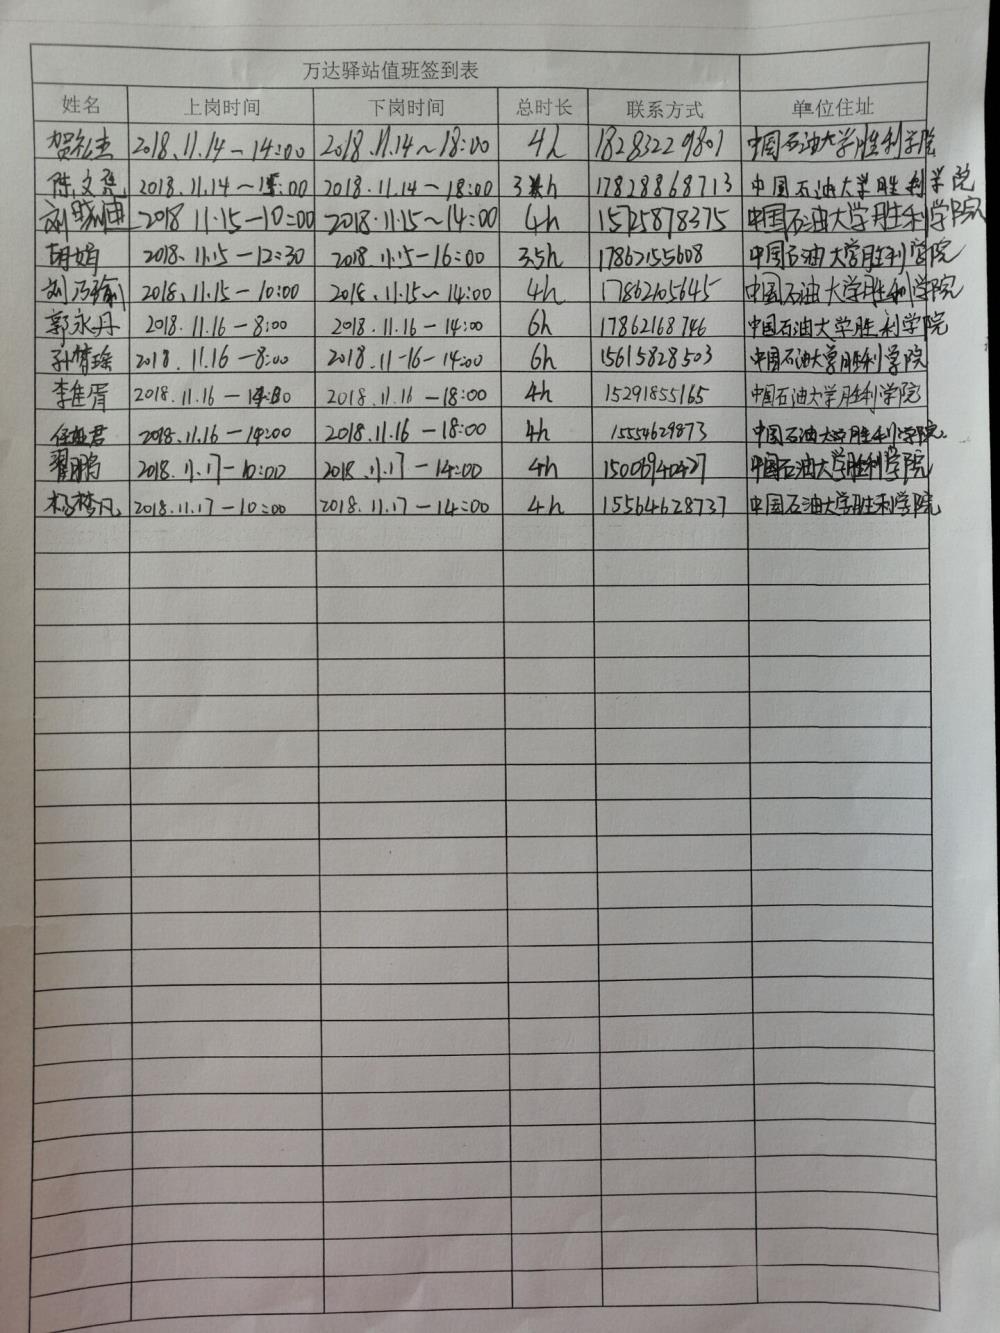 万达驿站值班签到表
姓名 上岗时间 下岗时间 总时长 联系方式 单位住址
2018.11.14-14:00 2018.11.14~18:00 4h 18283229801 中国石油大学胜利学院
陈文亮 2018.11.14~15:00 2018.11.14-18:00 3h 17828868713 中国石油大学胜利学院
刘晓迪 2018 11.15-10:00 2018.11.15~14:00 4h 15725878375 中国石油大学胜利学院
胡娟 2018.11.15-12:30 2018.11.15-16:00 3.5h 17862155608 中国石油大学胜利学院
刘乃瑜 2018.11.15-10:00 2018.11.15~14:00 4h 17862105645 中国石油大学胜利学院
郭永丹 2018.11.16-8:00 2018.11.16-14:00 6h 17862168746 中国石油大学胜利学院
孙梦瑶 2018.11.16-8:00 2018.11-16-14:00 6h 15615828503 中国石油大学胜利学院
李佳胥 2018.11.16-14:00 2018.11.16-18:00 4h 15291855165 中国石油大学胜利学院
2018.11.16-14:00 2018.11.16-18:00 4h 15554629873 中国石油大学胜利学院.
翟鹏 2018.11.17-10:00 2018.11.17-14:00 4h 15006940427 中国石油大学胜利学院
杨梦凡 2018.11.17-10:00 2018.11.17-14:00 4h 15564628737 中国石油大学胜利学院